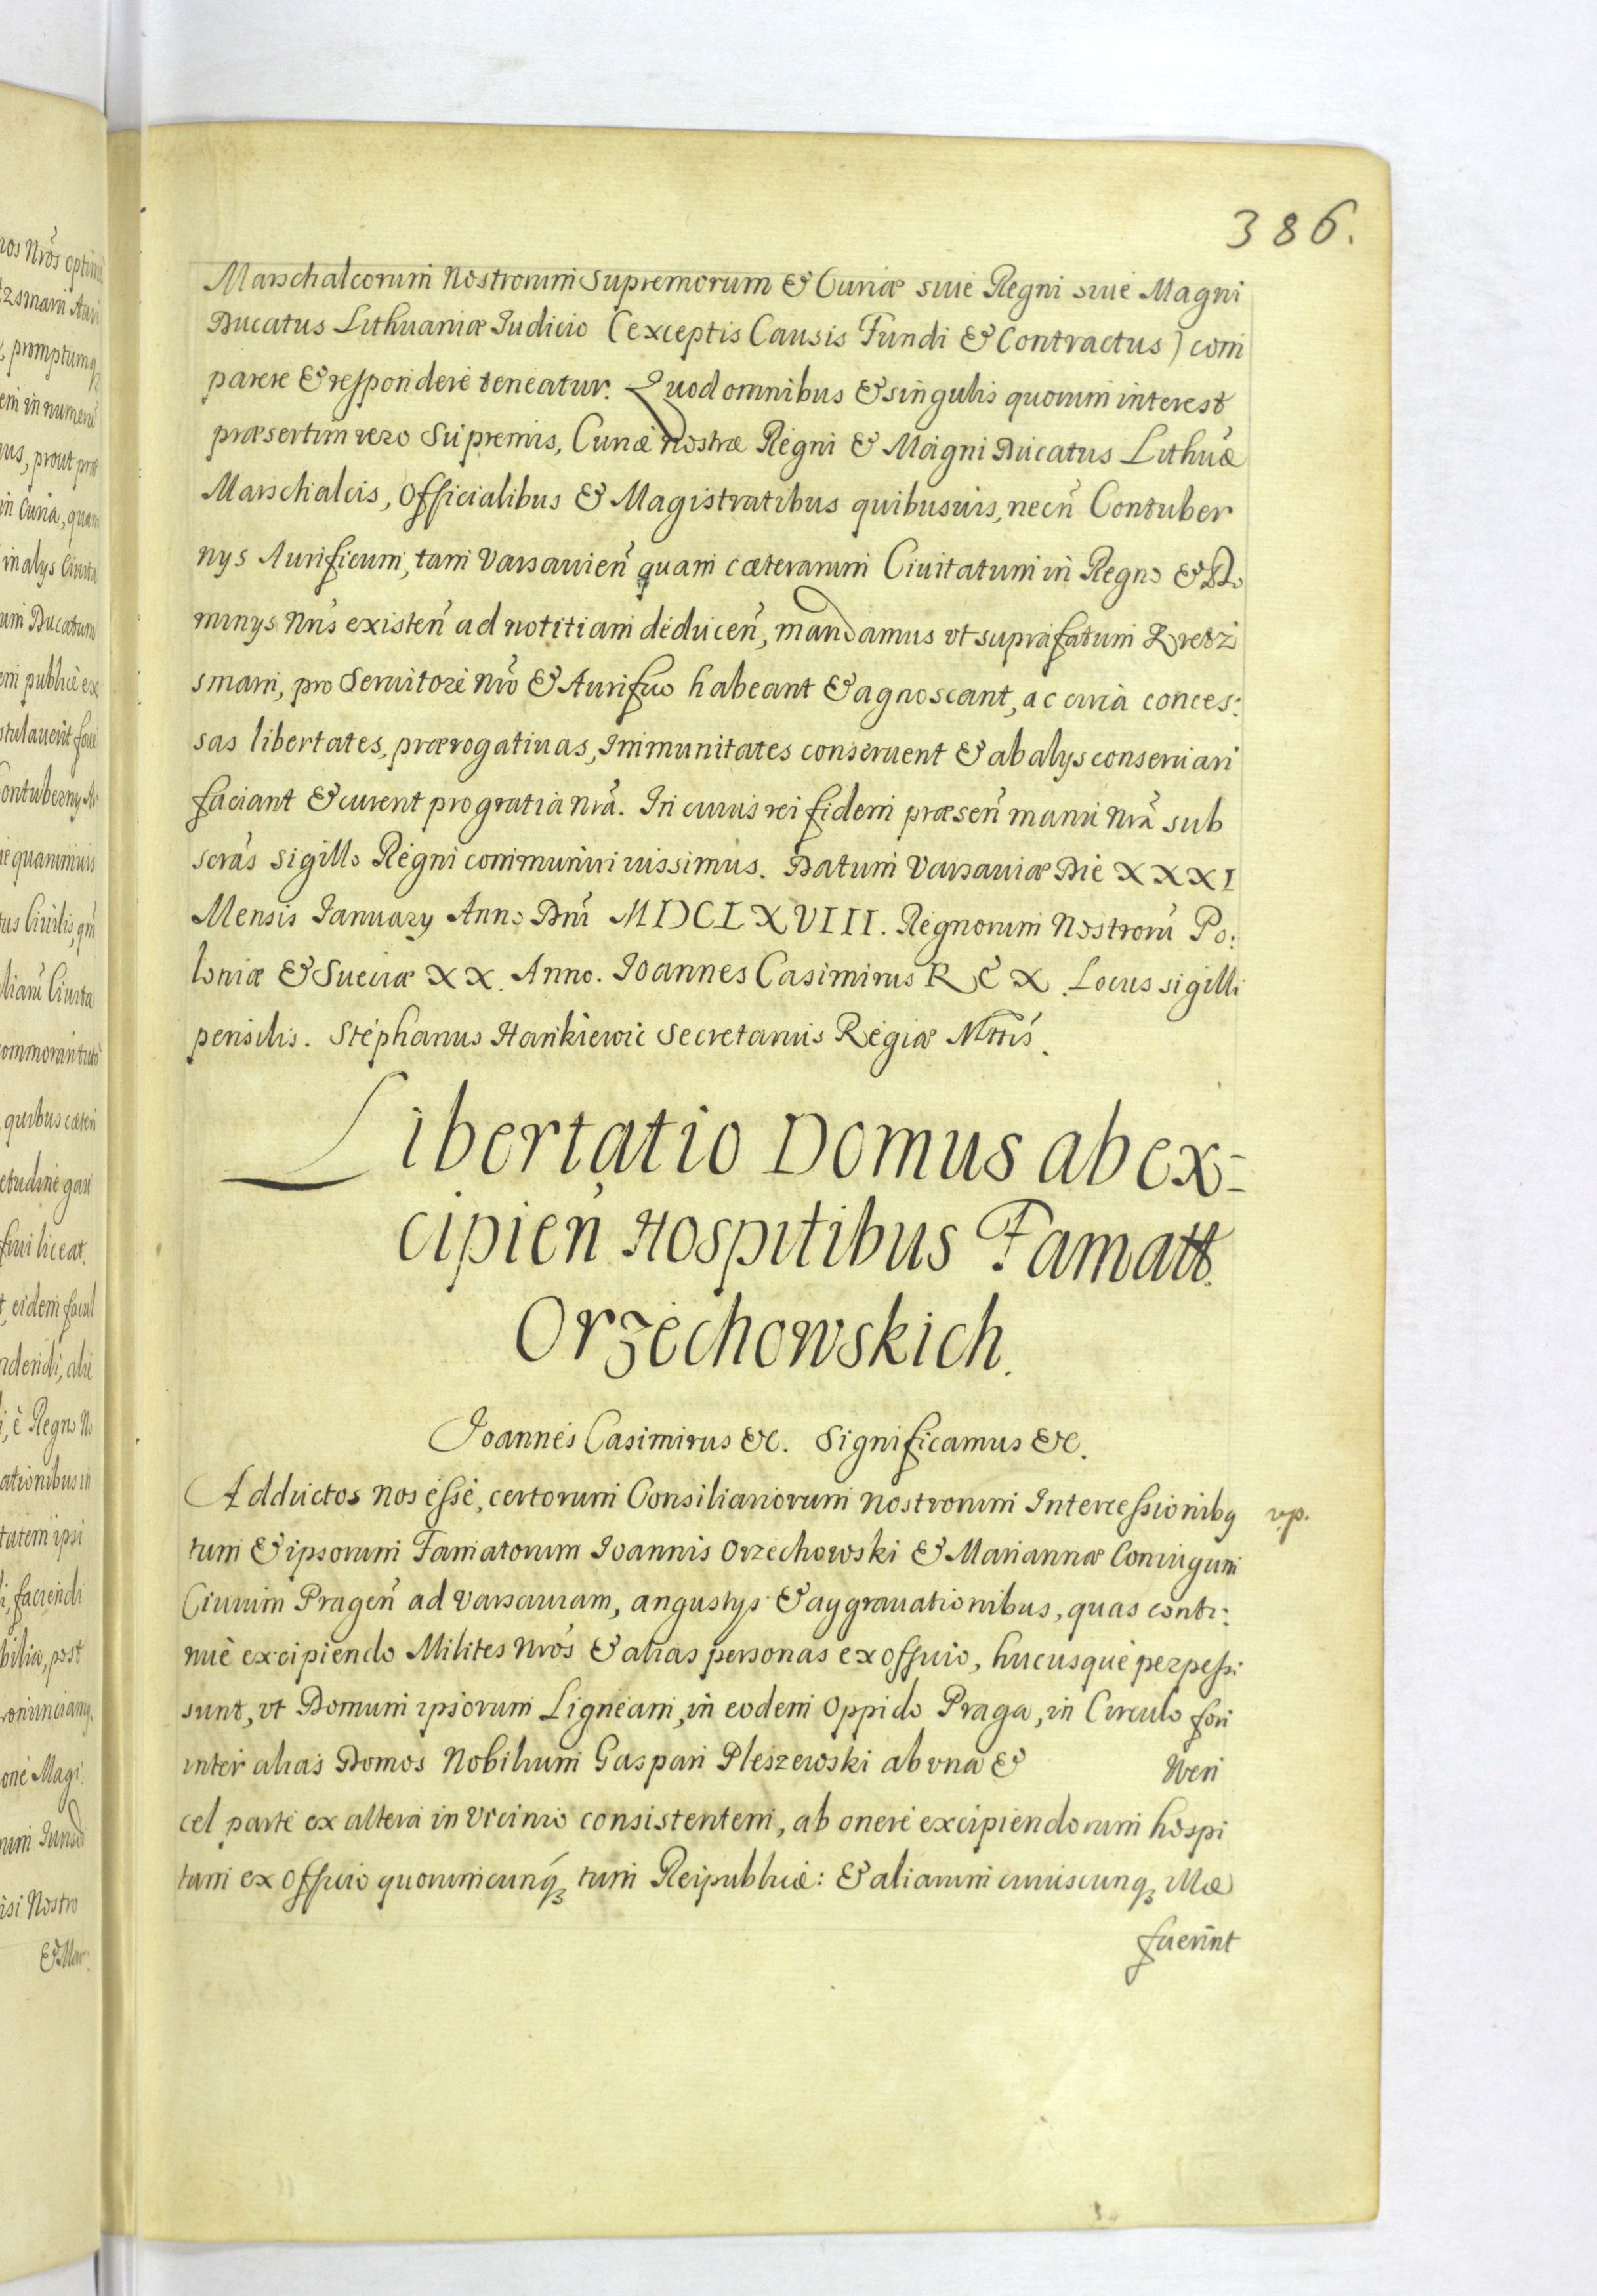 386.
Marschalcorum Nostrorum Supremorum & Curiæ siue Regni siue Magni
Ducatus Lithuaniæ Iudicio (exceptis Causis Fundi & Contractus) com
parere & respondere teneatur. Quod omnibus & singulis quorum interest
præsertim vero Supremis, Curiæ nostræ Regni & Magni Ducatus Lithuæ
Marschalcis, Officialibus & Magistratibus quibusuis, necñ Contuber
nys Aurificum, tam Varsauieñ quam cæterarum Ciuitatum in Regno & Do
minys Nris existeñ ad notitiam deduceñ, mandamus vt supra fatum Kretz
smam, pro Seruitore nro & Aurifico habeant & agnoscant, ac circa conces:
sas libertates, prærogatiuas, Immunitates conseruent & ab alys conseruari
faciant & curent pro gratia nra. In cuius rei fidem præseñ manu nra sub
scras sigillo Regni communiri iussimus. Datum Varsauiæ Die XXXI
Mensis January Anno Dni MDCLXVIII. Regnorum Nostroru Po:
loniæ & Sueciæ XX. Anno. Joannes Casimirus REX. Locus sigilli
pensilis. Stephanus Hankiewic Secretarius Regiæ Mttis.
Libertatio Domus ab ex-
cipień Hospitibus Famatt.
Orzechowskich.
Joannes Casimirus &c. Significamus &c.
Adductos nos esse, certorum Consiliariorum nostrorum Intercessionibq
rp.
tum & ipsorum Famatorum Joannis Orzechowski & Mariannæ Coniugum
Ciuium Prageñ ad Varsauiam, angustys & aggrauationibus, quas conti:
nue excipiendo Milites nros & alias personas ex officio, hucusque perpessi
sunt, vt Domum ipsorum Ligneam, in eodem Oppido Praga, in Circulo fori
inter alias Domos Nobilium Gaspari Pleszewski ab vna & Weri
cel parte ex altera in vicinio consistentem, ab onere excipiendorum hospi
tum ex officio quorumcunq tum Reipublicæ: & aliarum cuiuscunq Mæ
fuerint